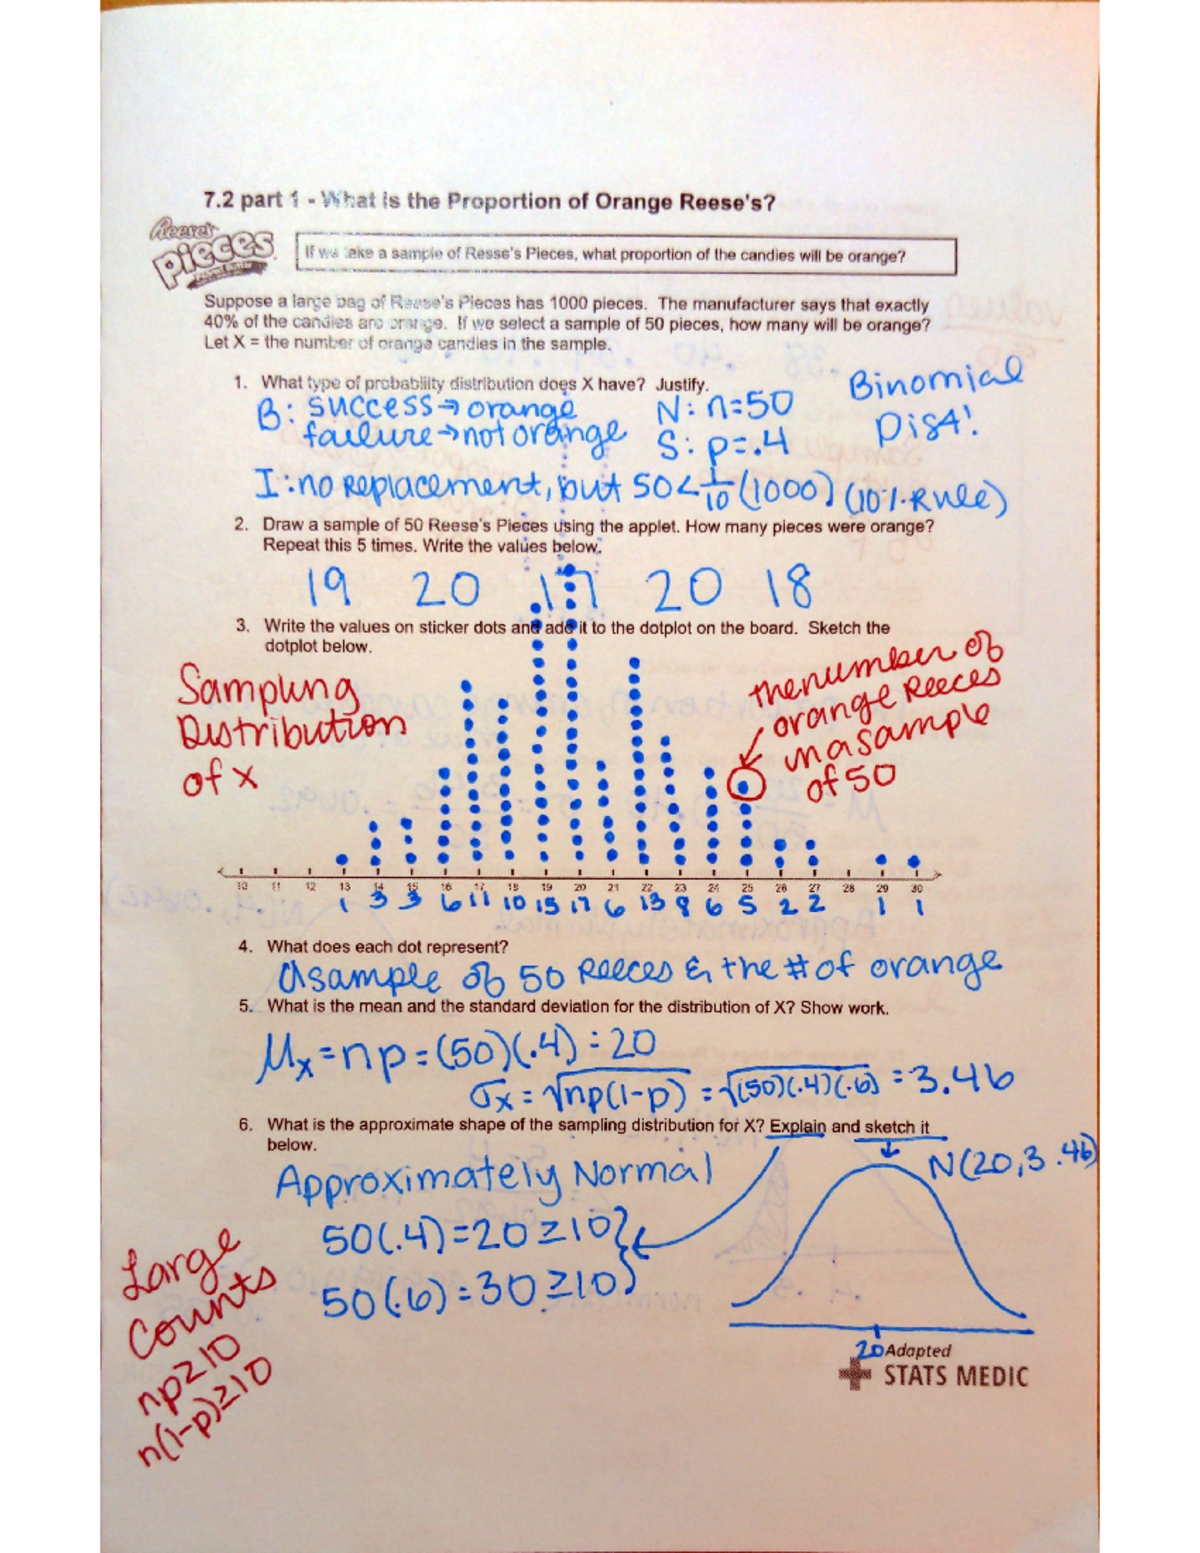 7.2 part 1 - What is the Proportion of Orange Reese's?
Reese's
Pieces
If we take a sample of Resse's Pieces, what proportion of the candies will be orange?
Suppose a large bag of Reese's Pieces has 1000 pieces. The manufacturer says that exactly
40% of the candies are orange. If we select a sample of 50 pieces, how many will be orange?
Let X = the number of orange candies in the sample.
1. What type of probability distribution does X have? Justify.
Binomial
Dist!
B: success→orange
failure→not orange
N: n=50
S: p=.4
I: no replacement, but 50<1/10(1000) (10% Rule)
2. Draw a sample of 50 Reese's Pieces using the applet. How many pieces were orange?
Repeat this 5 times. Write the values below.
19 20 17 20 18
3. Write the values on sticker dots and add it to the dotplot on the board. Sketch the
dotplot below.
Sampling
Distribution
of x
the number of
orange Reeces
in a sample
of 50
10 11 12 13 14 15 16 17 18 19 20 21 22 23 24 25 26 27 28 29 30
1 3 3 6 11 10 15 17 6 13 8 6 5 2 2 1 1
4. What does each dot represent?
A sample of 50 Reeces & the # of orange
5. What is the mean and the standard deviation for the distribution of X? Show work.
μx=np=(50)(.4)=20
σx=√np(1-p)=√(50)(.4)(.6)=3.46
6. What is the approximate shape of the sampling distribution for X? Explain and sketch it
below.
Approximately Normal
N(20,3.46)
50(.4)=20≥10
50(.6)=30≥10
Large
Counts
np≥10
n(1-p)≥10
20
Adapted
STATS MEDIC